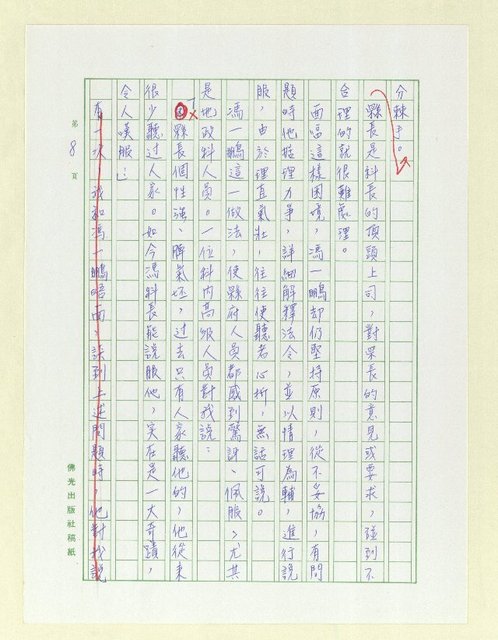 分棘手。
縣長是科長的頂頭上司，對縣長的意見或要求，碰到不
合理的就很難處理。
面臨這樣困境，馮一鵬卻仍堅持原則，從不妥協，有問
題時他據理力爭，詳細解釋法令，並以情理為輔，進行說
服，由於理直氣壯，往往使聽者心折，無話可說。
馮一鵬這一做法，使縣府人員都感到驚訝、佩服，尤其
是地政科人員。一位科內高級人員對我說：
縣長個性強、脾氣坏，過去只有人家聽他的，他從來
很少聽过人家。如今馮科長能說服他，實在是一大奇蹟，
令人嘆服…
有一次，我和馮一鵬唔面，談到上述問題時，他對我說
第8頁
佛光出版社稿紙